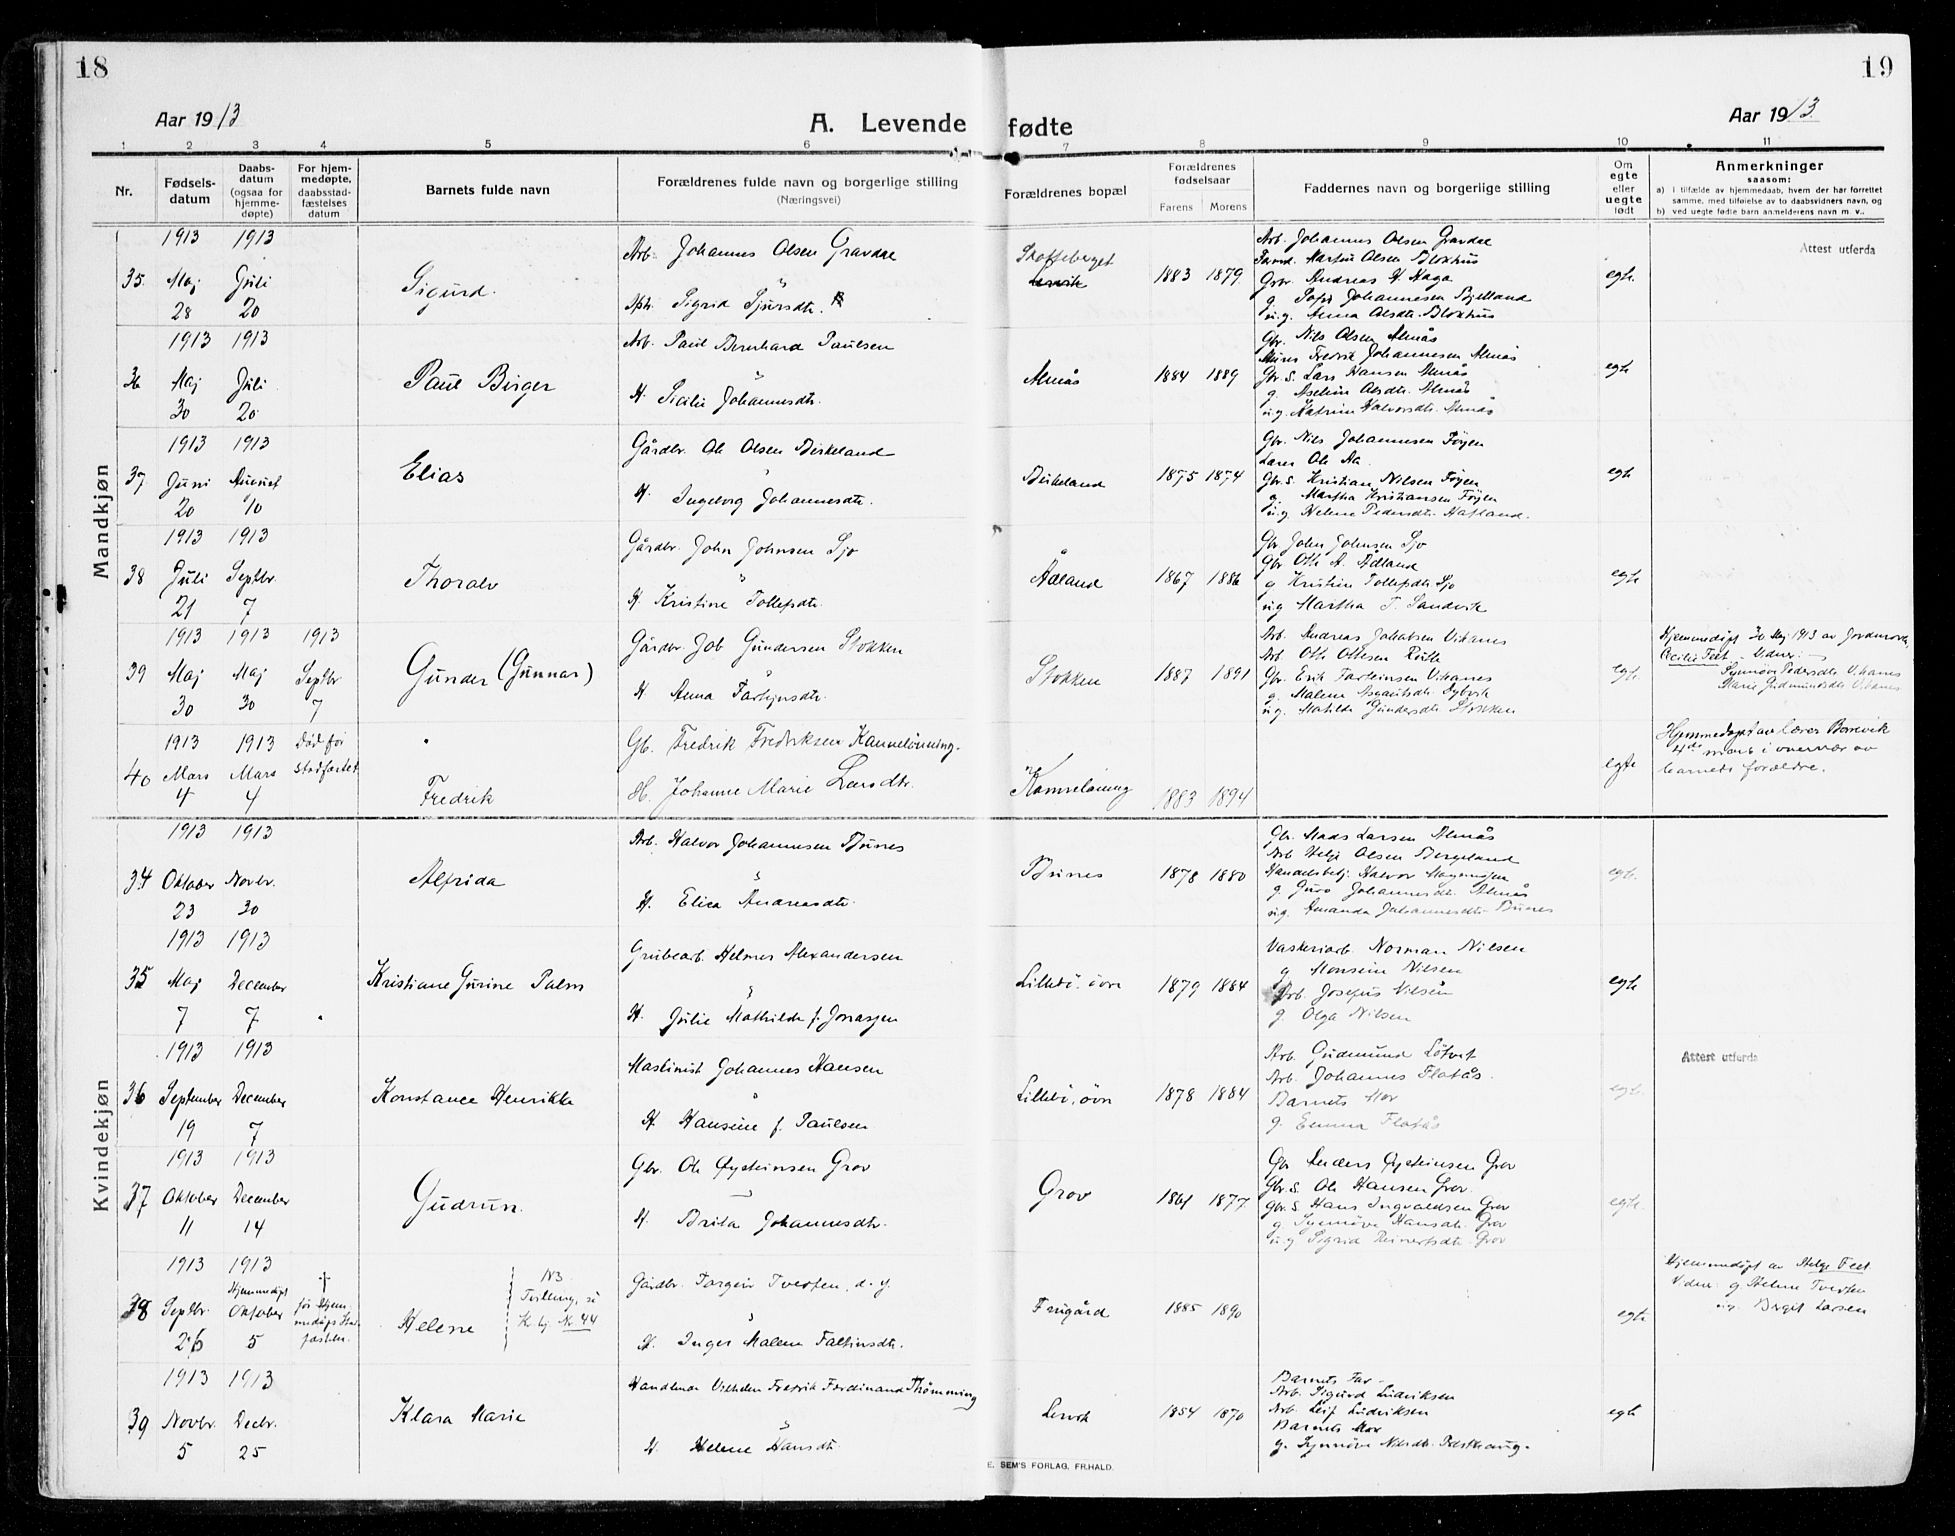 18
19
Aar 1913
A. Levende fødte
Aar 1913
1 2 3 4 5 6 7 8 9 10 11
Nr.
Fødsels-
datum
Daabs-
datum
(ogsaa for
hjemme-
døpte)
For hjem-
medøpte,
daabsstad-
fæstelses
datum
Barnets fulde navn
Forældrenes fulde navn og borgerlige stilling
(Næringsvei)
Forældrenes bopæl
Forældrenes
fødselsaar
Farens Morens
Faddernes navn og borgerlige stilling
Om
egte
eller
uegte
født
Anmerkninger
saasom:
a) i tilfælde av hjemmedaab, hvem der har forrettet
samme, med tilføielse av to daabsvidners navn, og
b) ved uegte fødte barn anmelderens navn m. v..
Mandkjøn
35. 1913 Maj 28
1913 Juli 20
Sigurd.
Arb. Johannes Olsen Gravdae
Sigrid Sjursdtr.
Skotteberget
1883 1879
Arb. Johannes Olsen Gravdae
Martin Olsen Blokhus
Gbr. Andreas H Haga
g. Johannesen
u.g. Anna Olsdtr. Blokhus
egte
Attest utferda
36 1913 Maj 30
1913 Juli 20
Paul Birger
Arb. Paul Bernhard Paulsen
H. Sicilie Johannesdtr.
Almås
1884 1889
Gbr. Nils Olsen Almås
Fredrik Johannesen Almås
Gbr. S. Lars Hansen Almås
g. Olsdtr. Almås
u.g. Katrine Halvorsdtr. Almås
egte
37 1913 Juni 20
1913 August 10
Elias
Gårdbr. Ole Olsen Birkeland
H. Ingeborg Johannesdtr.
Birkeland
1875 1874
Gbr. Nils Johannesen Føyen
Lærer Ole Aa.
Gbr. S. Kristian Nilsen Føyen
g. Martha Kristiansen Føyen
u.g. Helene Pedersdtr. Hafland.
egte
38 1913 Juli 21
1913 Septbr. 7
Thoralv
Gårdbr. John Johnsen Sjo
H. Kristine Tollefsdtr.
Ådland
1867 1886
Gbr John Johnsen Sjo
Gbr Otto A. Ådland
g Kristine Tollefsdtr Sjo
u.g Martha T. Sandvik
egte
39 1913 Maj 30
1913 Maj 30
1913 Septbr 7
Gunder (Gunnar)
Gårdbr. Job Gundersen Stokken
H. Anna Tarjeisdtr.
Stokken
1887 1891
Arb. Andreas Jakobsen Vihanes
Arb. Otto Ottesen
Gbr. Erik Vihanes
g. Malene
u.g. Matilde Gundersdtr Stokken
egte
Hjemmedøpt 30 Maj 1913 av Jordmor
Cecilie Teet. Vidner:
Synnøve Pedersdtr Vihanes
Marie Gudmundsdtr Vihanes
40 1913 Mars 4
1913 Mars 4
Død før
stadfæstet
Fredrik
Gb. Fredrik Fredriksen Kanneløning.
H. Johanne Marie Larsdtr.
Kanneløning
1883 1894
egte
Hjemmedøpt av lærer Borrevik
4de mars i overvær av
barnets forældre.
Kvindekjøn
34 1913 Oktober 23
1913 Novbr. 30
Alfrida
Arb. Halvor Johannesen Bunes
H. Elisa Andreasdtr.
Bunes
1878 1880
Gbr. Mads Larsen Almås
Arb Helje Olsen Bergeland
Handelsbetj. Halvor Magnussen
g. Guro Johannesdtr. Almås
u.g. Amanda Johannesdtr. Bunes
egte.
35 1913 Maj 7
1913 December 7
Kristiane Gurine Palm
Grubearb. Helmer Alexandersen
H. Julie Mathilde f. Jonassen
Lillebø, övre
1879 1884
Vaskeriarb. Norman Nilsen
g Nilsen
Arb. Josefus Nilsen
g. Olga Nilsen
egte
36 1913 September 19
1913 December 7
Konstance Henrikke
Maskinist Johannes Hansen
H. Hansine f. Paulsen
Lillebø, övre
1878 1884
Arb. Gudmund Løtveit
Arb. Johannes Flatås.
Barnets Mor
g. Emma Flatås
egte.
Attest utferda
37 1913 Oktober 11
1913 December 14
Gudrun.
Gbr. Ole Øysteinsen Grov
H. Brita Johannesdtr.
Grov
1861 1877
Gbr Anders Øysteinsen Grov
Gbr. S. Ole Hansen Grov.
Gbr. S. Hans Ingvaldsen Grov
g. Synnøve Hansdtr. Grov
u.g Sigrid Reinertsdtr. Grov
egte.
38 1913 Septbr. 26
1913 Hjemmedøpt Oktober 5
† før Hjemmedåps Stadfæstelse.
Helene
NB
Tvilling, se
K. kj. Nr. 44
Gårdbr. Torgeir Tveiten, d. y.
H. Inger Malene Faltinsdtr.
Frugård
1885 1890
egte
Hjemmedøpt av Helge Teet
Vidner: g Helene Tveiten
u.g. Bergit Larsen
39 1913 Novbr. 5
1913 Decbr. 25
Klara Marie
Handlende Vilhelm Fredrik Ferdinand Thømming
H. Helene Hansdtr.
Lervik
1854 1870
Barnets Far
Arb. Sigurd Ludviksen
Arb. Leif Ludviksen
Barnets Mor
g. Synnøve Nilsdtr.
egte
E. SEM'S FORLAG, FR.HALD.